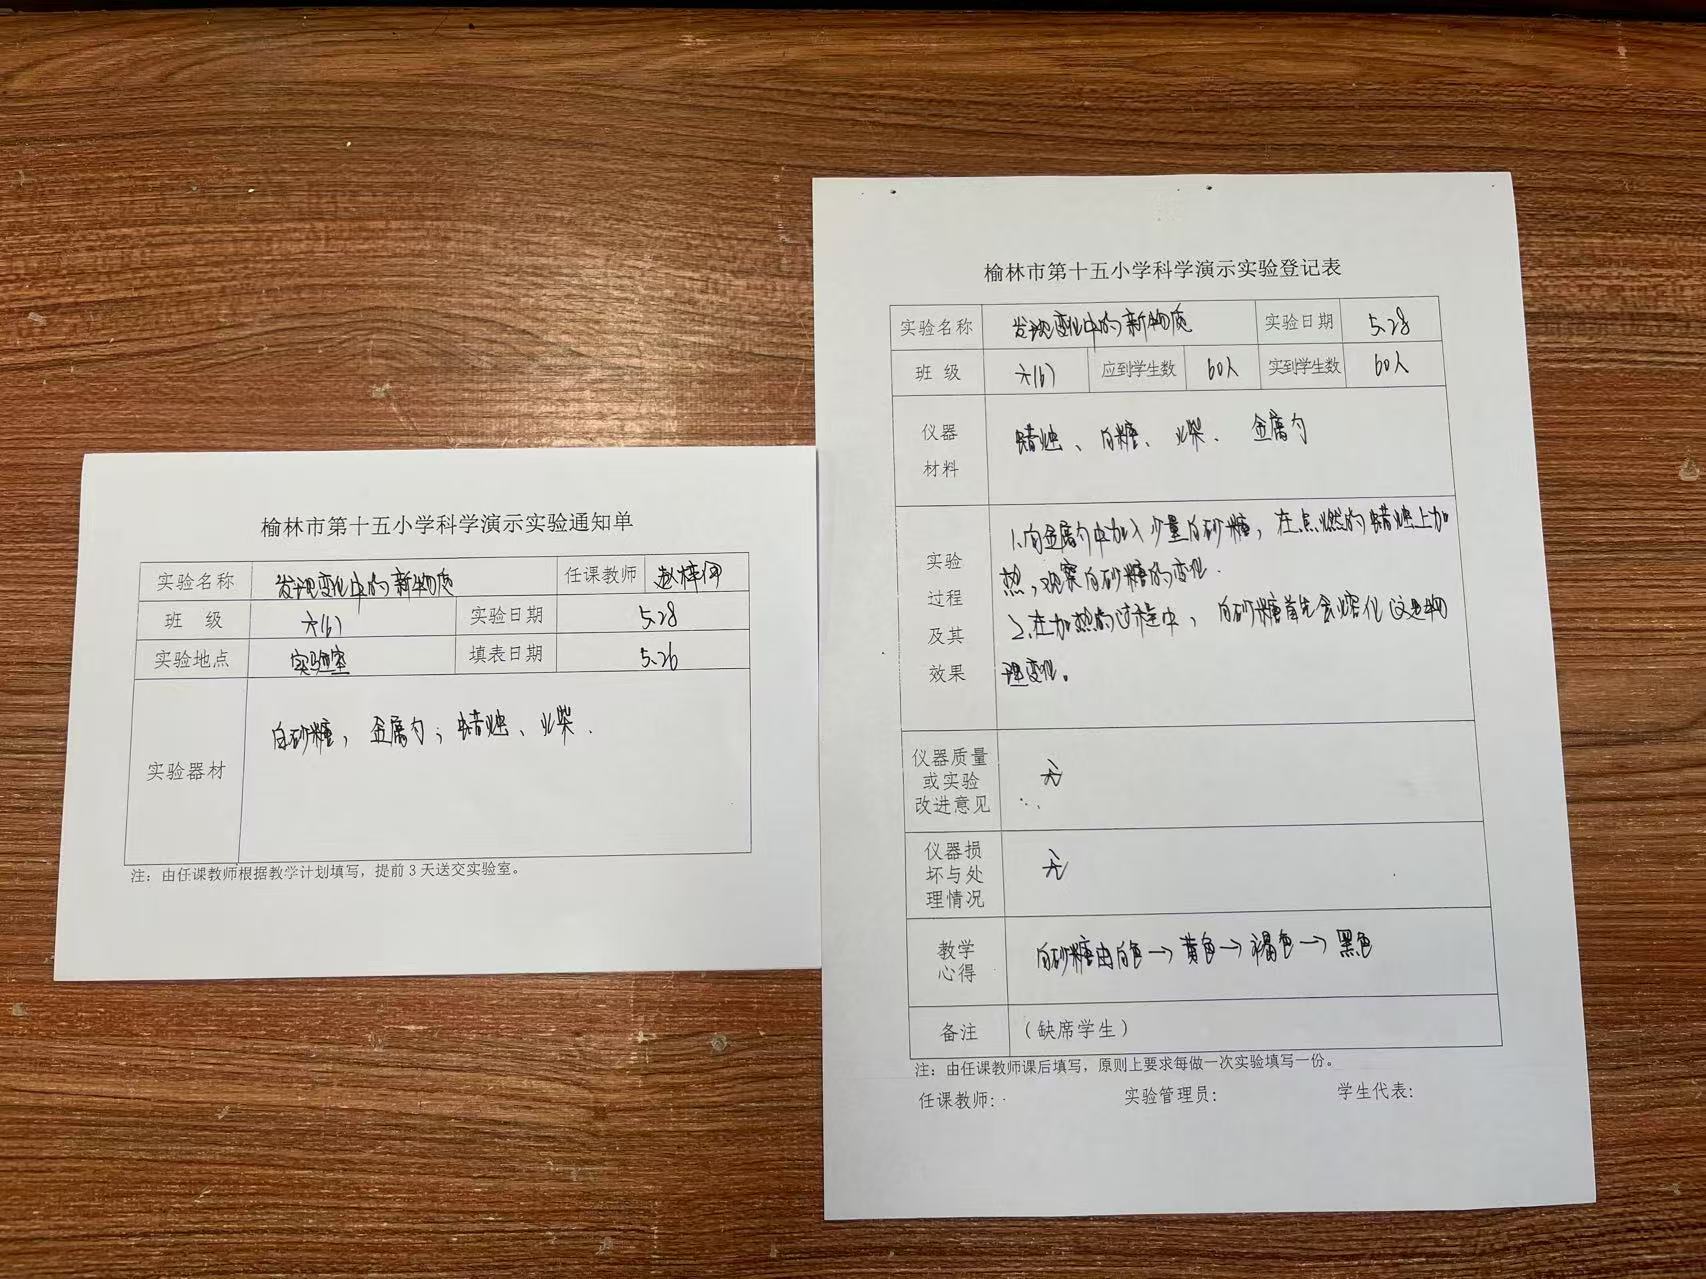 榆林市第十五小学科学演示实验通知单
实验名称 发现变化中的新物质 任课教师
班 级 六(6) 实验日期 5.28
实验地点 实验室 填表日期 5.26
实验器材 白砂糖, 金属勺, 蜡烛、火柴.
注：由任课教师根据教学计划填写，提前3天送交实验室。
榆林市第十五小学科学演示实验登记表
实验名称 发现变化中的新物质 实验日期 5.28
班 级 六(6) 应到学生数 60人 实到学生数 60人
仪器
材料
蜡烛、白糖、火柴、金属勺
实验
过程
及其
效果
1.向金属勺中加入少量白砂糖, 在点燃的蜡烛上加
热, 观察白砂糖的变化.
2.在加热的过程中, 白砂糖首先会熔化 这是物
理变化。
仪器质量
或实验
改进意见
无
仪器损
坏与处
理情况
无
教学
心得
白砂糖由白色→黄色→褐色→黑色
备注 （缺席学生）
注：由任课教师课后填写，原则上要求每做一次实验填写一份。
任课教师： 实验管理员： 学生代表：